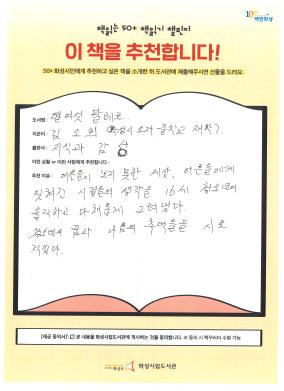 100 백만화성
책읽는 50+ 책읽기 챌린지
이 책을 추천합니다!
50+ 화성시민에게 추천하고 싶은 책을 소개한 뒤 도서관에 제출해주시면 선물을 드려요.
도서명 : 열여섯 발레로.
지은이 : 김소희
출판사 : 지식과 감성
이런 상황 or 이런 사람에게 추천합니다 :
추천 이유 : 어른들이 보지 못한 세상, 어른들에게
잊혀진 시절들의 생각을 16세 청소년이
솔직하고 다채롭게 그려냈다.
꿈과 나름의 추억들을 시로
적었다.
[제공 동의서] 본 내용을 화성시립도서관에 게시하는 것을 동의합니다. ※ 동의 시 책꾸러미 수령 가능
화성시립도서관